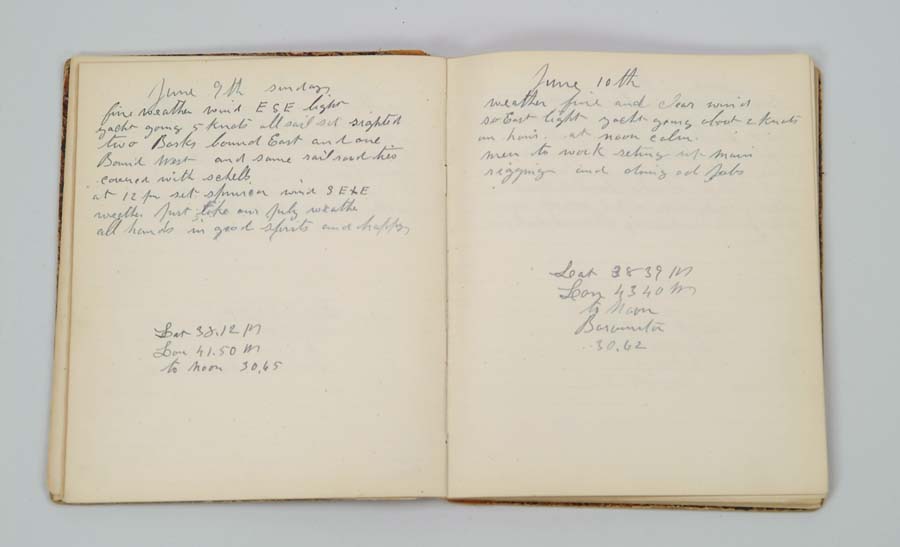 June 9th sunday
fine weather wind E S E light
yacht going 5 Knots all sail set sighted
two Barks bound East and one
Bound West and some railroad ties
covered with schells
at 12 pm set wind S E & E
weather just like our july weather
all hands in good spirits and happy
Lat 38.12 N
Lon 41.50 W
to Noon 30.65
June 10th
weather fine and clear wind
so East light yacht going about 2 Knots
an hour. at noon calm.
men to work seting up main
rigging and doing od jobs
Lat 38 39 N
Lon 43 40 W
to Noon
Baromitor
30.62